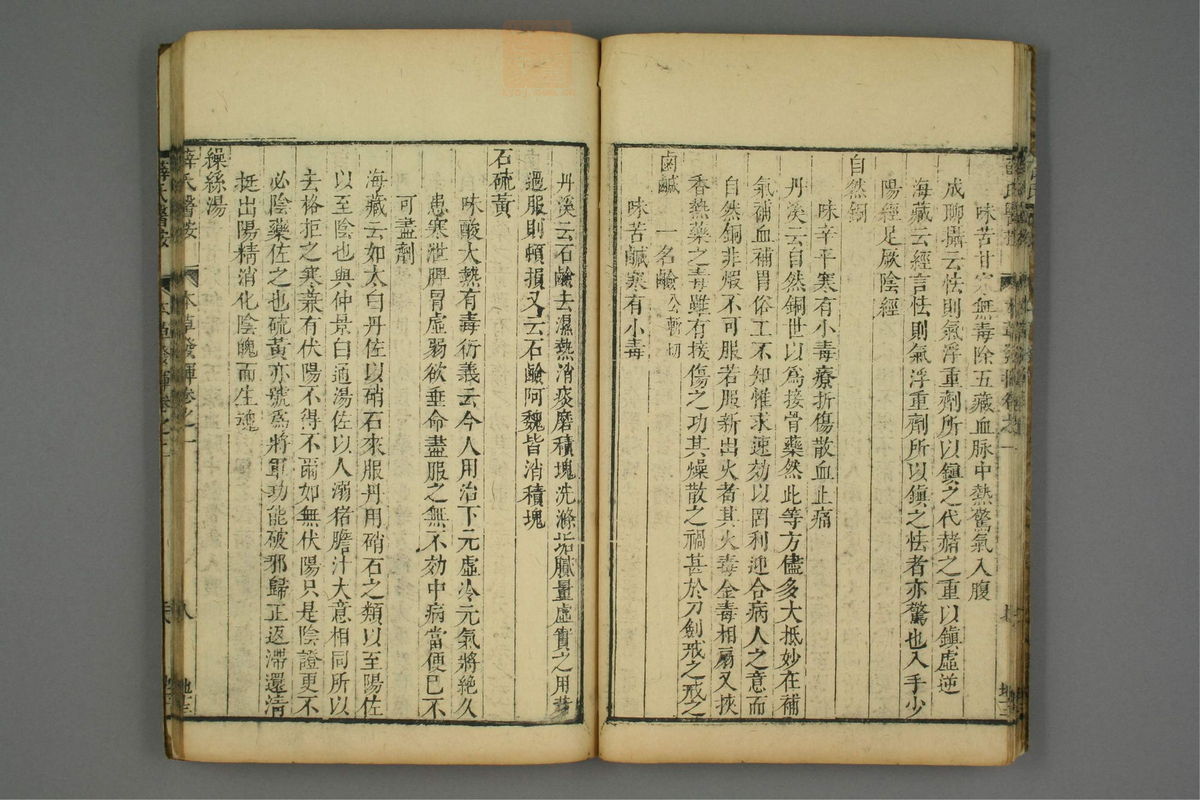 味苦甘寒無毒除五臟血脉中熱驚氣入腹
成聊攝云怯則氣浮重劑所以鎮之代赭之重以鎮虛逆
海藏云經言怯則氣浮重劑所以鎮之怯者亦驚也入手少
陽經足厥陰經
自然銅
味辛平寒有小毒療折傷散血止痛
丹溪云自然銅世以爲接骨藥然此等方儘多大抵妙在補
氣補血補胃俗工不知惟求速効以罔利迎合病人之意而
自然銅非煆不可服若服新出火者其火毒金毒相扇又挾
香熱藥之毒雖有接傷之功其燥散之禍甚於刀劍戒之戒之
鹵鹹 一名鹼 公暫切
味苦鹹寒有小毒
丹溪云石鹼去濕熱消痰磨積塊洗滌垢膩量虛實之用若
過服則頓損又云石鹼阿魏皆消積塊
石硫黃
味酸大熱有毒衍義云今人用治下元虛冷元氣將絶久
患寒泄脾胃虛弱欲垂命盡服之無不効中病當便已不
可盡劑
海藏云如太白丹佐以硝石來服丹用硝石之類以至陽佐
以至陰也與仲景白通湯佐以人溺猪膽汁大意相同所以
去格拒之寒兼有伏陽不得不爾如無伏陽只是陰證更不
必陰藥佐之也硫黃亦號爲將軍功能破邪歸正返滯還淸
挺出陽精消化陰魄而生魂
繰絲湯
薛氏醫按 本草發揮卷之一 八